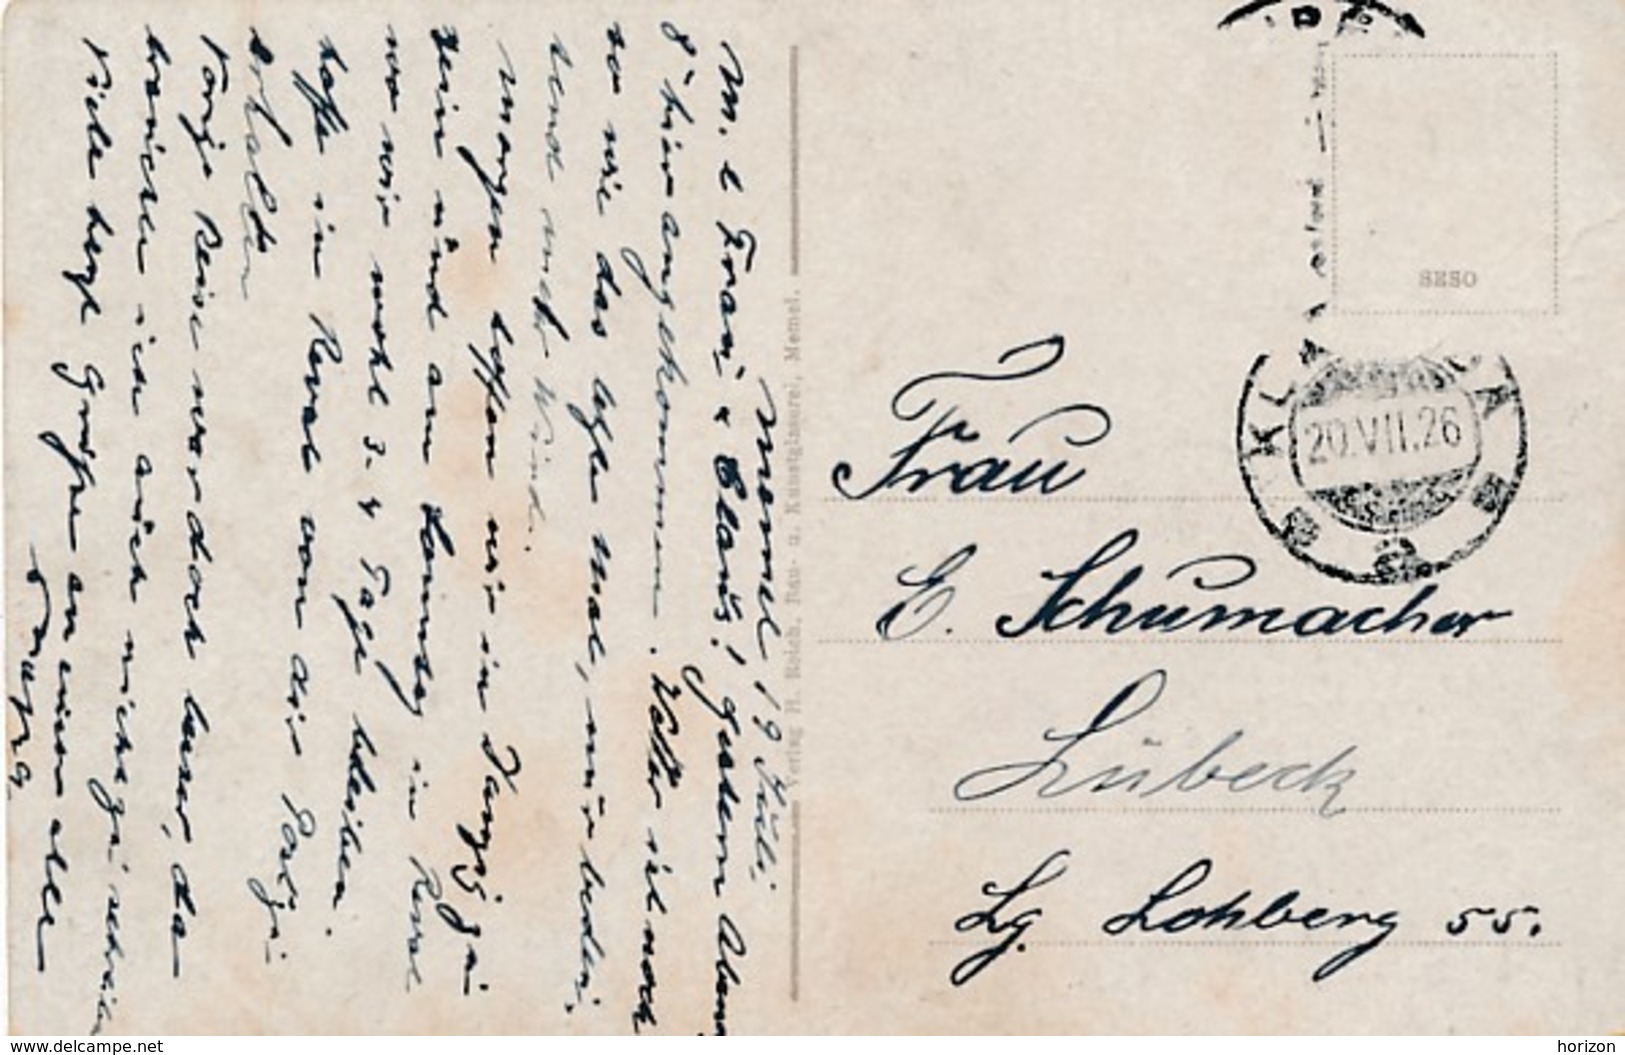 Memel 19 Juli
M. l Frau & Claus! gestern Abend
8° hier angekommen. Wetter ist noch
so wie das letzte mal, nur bedeu-
tend mehr Wind.
Morgen hoffen wir in Danzig zu
sein und am Sonntag in Reval
wo wir wohl 3-4 Tage bleiben.
hoffe in Reval von dir Post zu
erhalten
Vorige Reise war doch besser, da
brauchte ich auch nicht zu schreiben
Viele herzl Grüße an euch alle
Papa
Verlag H. Reich, Bau- u. Kunstglaserei, Memel.
OSES
KL A
20.VII.26
Frau
E. Schumacher
Lübeck
Lg. Lohberg 55.
www.delcampe.net
horizon